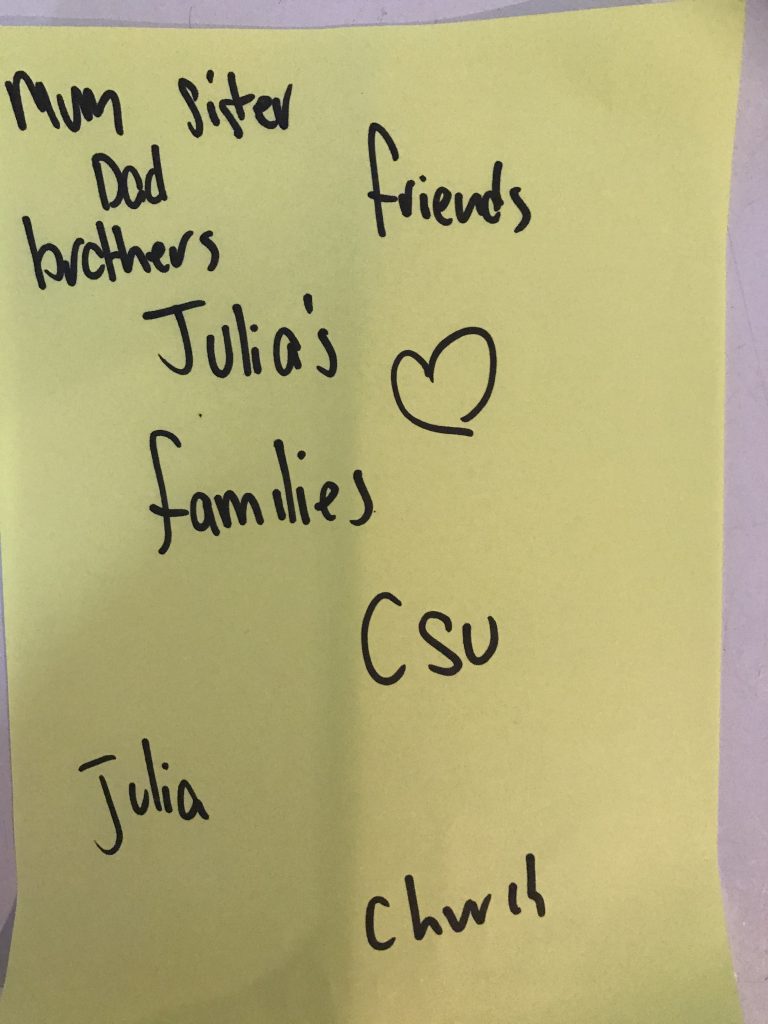 Mum sister
Dad
brothers
friends
Julia's
families
CSU
Julia
church